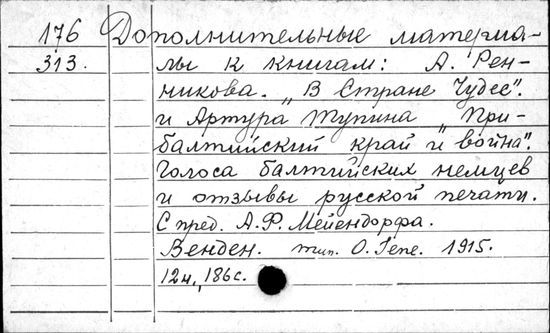 176 Дополнительные материа-
313. лы к книгам: А. Рен-
никова. „В Стране Чудес".
и Артура Тупина „При-
балтийский край и война".
Голоса балтийских немцев
и отзывы русской печати.
С пред. А. Ф. Мейендорфа.
Венден. тип. О. Гепе. 1915.
12н., 186с.